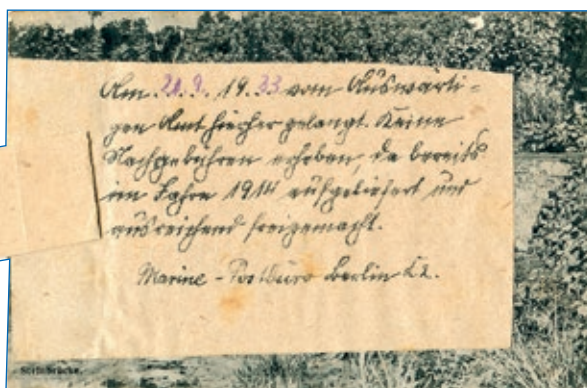 Am 21.9.1933 vom Auswärti=
gen Amt hierher gelangt. Keine
Nachgebühren erhoben, da bereits
im Jahre 1914 aufgeliefert und
ausreichend freigemacht.
Marine-Postbüro Berlin C2.